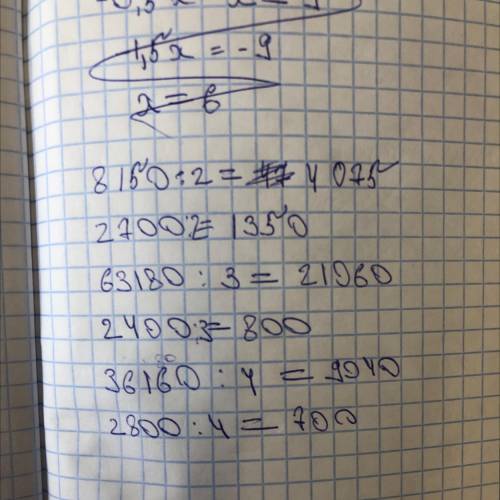 -0,5x - x = 9
1,5x = -9
x = 6
8150:2= 4 075
2700:2= 1350
63180 : 3 = 21060
2400:3= 800
36160 : 4 = 9040
2800 : 4 = 700